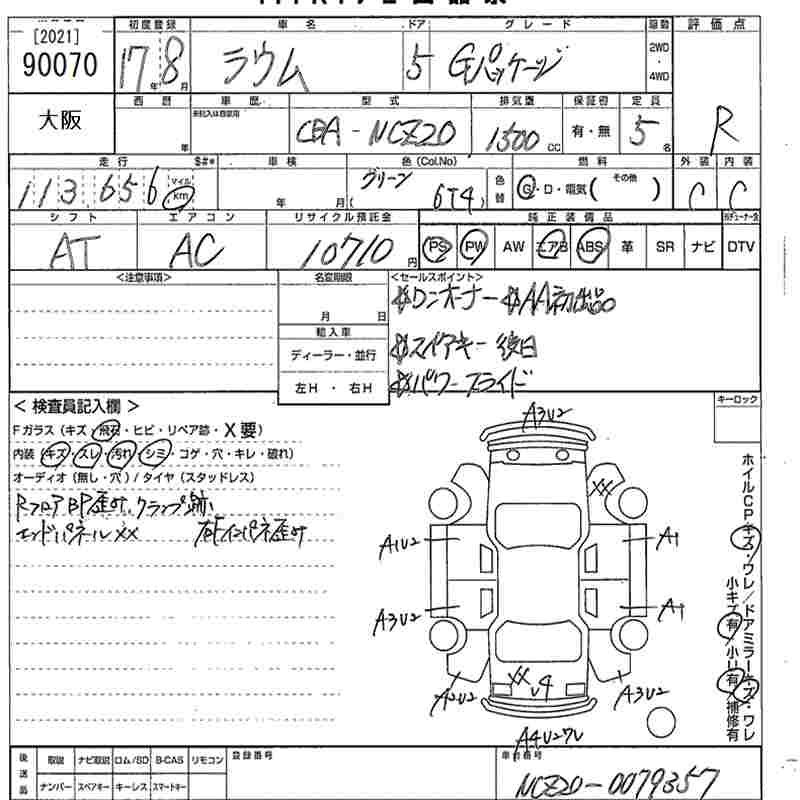 [2021]
90070
大阪
初度登録 車名 ドア グレード 駆動 評価点
17年 8月 ラウム 5 Gパッケージ 2WD・4WD R
西暦 車歴 型式 排気量 保証書 定員
年 未記入は自家用 CBA-NCZ20 1500cc 有・無 5名
走行 $#* 車検 色(Col.No) 燃料 外装 内装
113,656 マイル km 年 月 グリーン ( 6T4 ) 色替 G・D・電気( その他 ) C C
シフト エアコン リサイクル預託金 純正装備品
AT AC 10710円 PS PW AW エアB ABS 革 SR ナビ DTV
<注意事項> 名変期限 <セールスポイント>
月 日
輸入車
ディーラー・並行
左H ・ 右H
ワンオーナー AA初出品
スペアキー 後日
パワースライド
< 検査員記入欄 > キーロック
Fガラス (キズ・飛石・ヒビ・リペア跡・X要)
内装 (キズ・スレ・汚れ・シミ・コゲ・穴・キレ・破れ)
オーディオ (無し・穴) / タイヤ (スタッドレス)
RフロアBP歪サ、クランプ跡
エンドパネルXX 右Fインパネ歪サ
A3U2
XX
A1U2 A1
A3U2 A1
XX
U4
A2U2 A3U2
A4U2ワレ
ホイルCP・キズ・ワレ/ドアミラー・キズ・ワレ
小キズ有/小U有/補修有
後送品 取説 ナビ取説 ロム/SD B-CAS リモコン 登録番号 車台番号
ナンバー スペアキー キーレス スマートキー NCZ20-0079357